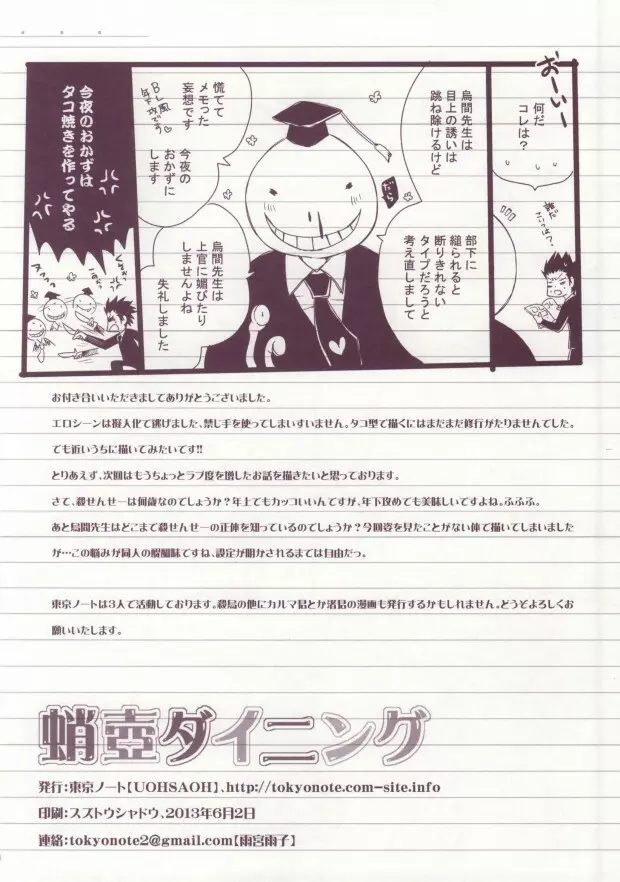 おーいー
何だ
コレは？
誰だ
こいつは？
烏間先生は
目上の誘いは
跳ね除けるけど
だら
部下に
縋られると
断りきれない
タイプだろうと
考え直しまして
慌てて
メモった
妄想です
BL風
年下攻でう♡
今夜の
おかずに
します
烏間先生は
上官に媚びたり
しませんよね
失礼しました
今夜のおかずは
タコ焼きを作ってやる
お付き合いいただきましてありがとうございました。
エロシーンは擬人化で逃げました、禁じ手を使ってしまいすいません。タコ型で描くにはまだまだ修行がたりませんでした。
でも近いうちに描いてみたいです!!
とりあえず、次回はもうちょっとラブ度を増したお話を描きたいと思っております。
さて、殺せんせーは何歳なのでしょうか？年上でもカッコいいんですが、年下攻めでも美味しいですよね。ふふふ。
あと烏間先生はどこまで殺せんせーの正体を知っているのでしょうか？今回姿を見たことがない体で描いてしまいました
が…この悩みが同人の醍醐味ですね、設定が明かされるまでは自由だっ。
東京ノートは3人で活動しております。殺烏の他にカルマ君とか渚君の漫画も発行するかもしれません。どうぞよろしくお
願いいたします。
蛸壺ダイニング
発行：東京ノート【UOHSAOH】、http://tokyonote.com-site.info
印刷：スズトウシャドウ、2013年6月2日
連絡：tokyonote2@gmail.com【雨宮雨子】